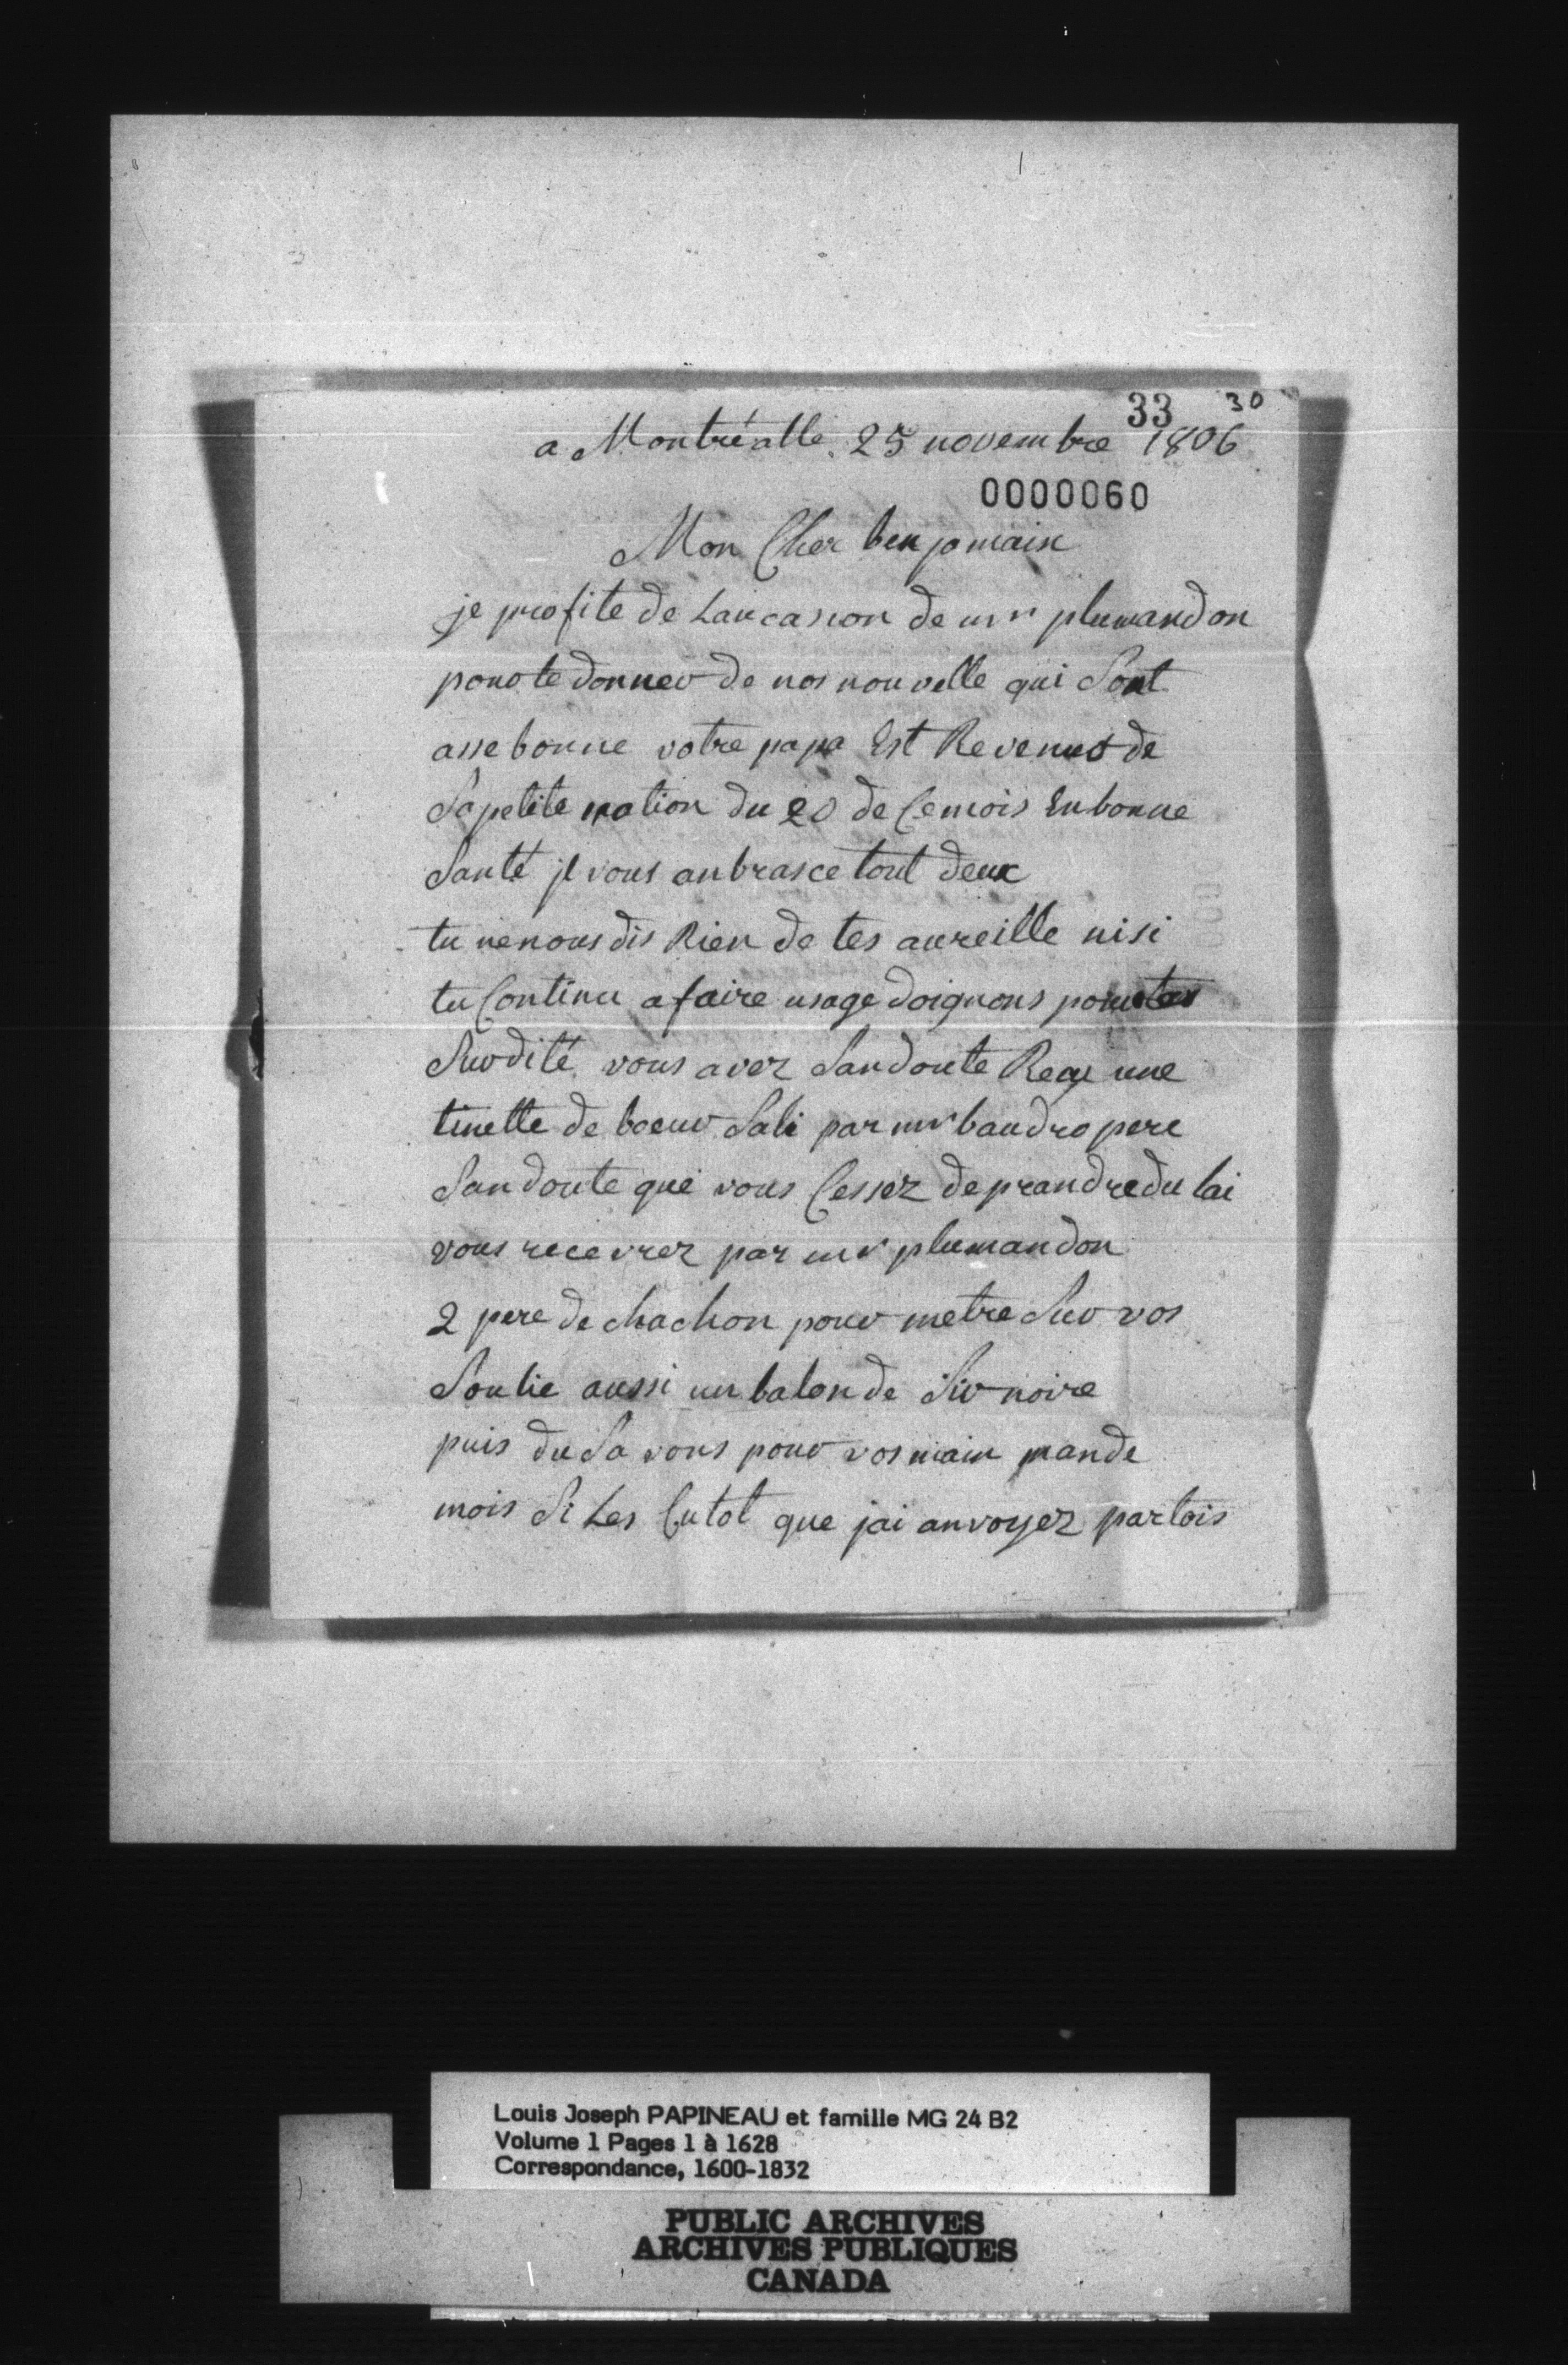 33 30
a Montréalle 25 novembre 1806
0000060
Mon Cher benjomain
je profite de Laucasion de mr plumandon
pour te donner de nos nouvelle qui Sont
asse bonne votre papa Est Revenus de
Sa petite nation du 20 de Ce mois En bonne
Santé jl vous anbrasce tout deux
tu ne nous dis Rien de tes aureille ni si
tu Continu a faire usage doignons pour tas
Surdité vous avez Sandoute Recu une
tinette de boeuv Sali par mr baudro pere
Sandoute que vous Cessez de prandre du lai
vous recevrez par mr plumandon
2 pere de chachon pour metre Sur vos
Soulie aussi un balon de Sir noire
puis du Savons pour vos main mande
mois Si Les Cutot que jai anvoyez partois
Louis Joseph PAPINEAU et famille MG 24 B2
Volume 1 Pages 1 à 1628
Correspondance, 1600-1832
PUBLIC ARCHIVES
ARCHIVES PUBLIQUES
CANADA